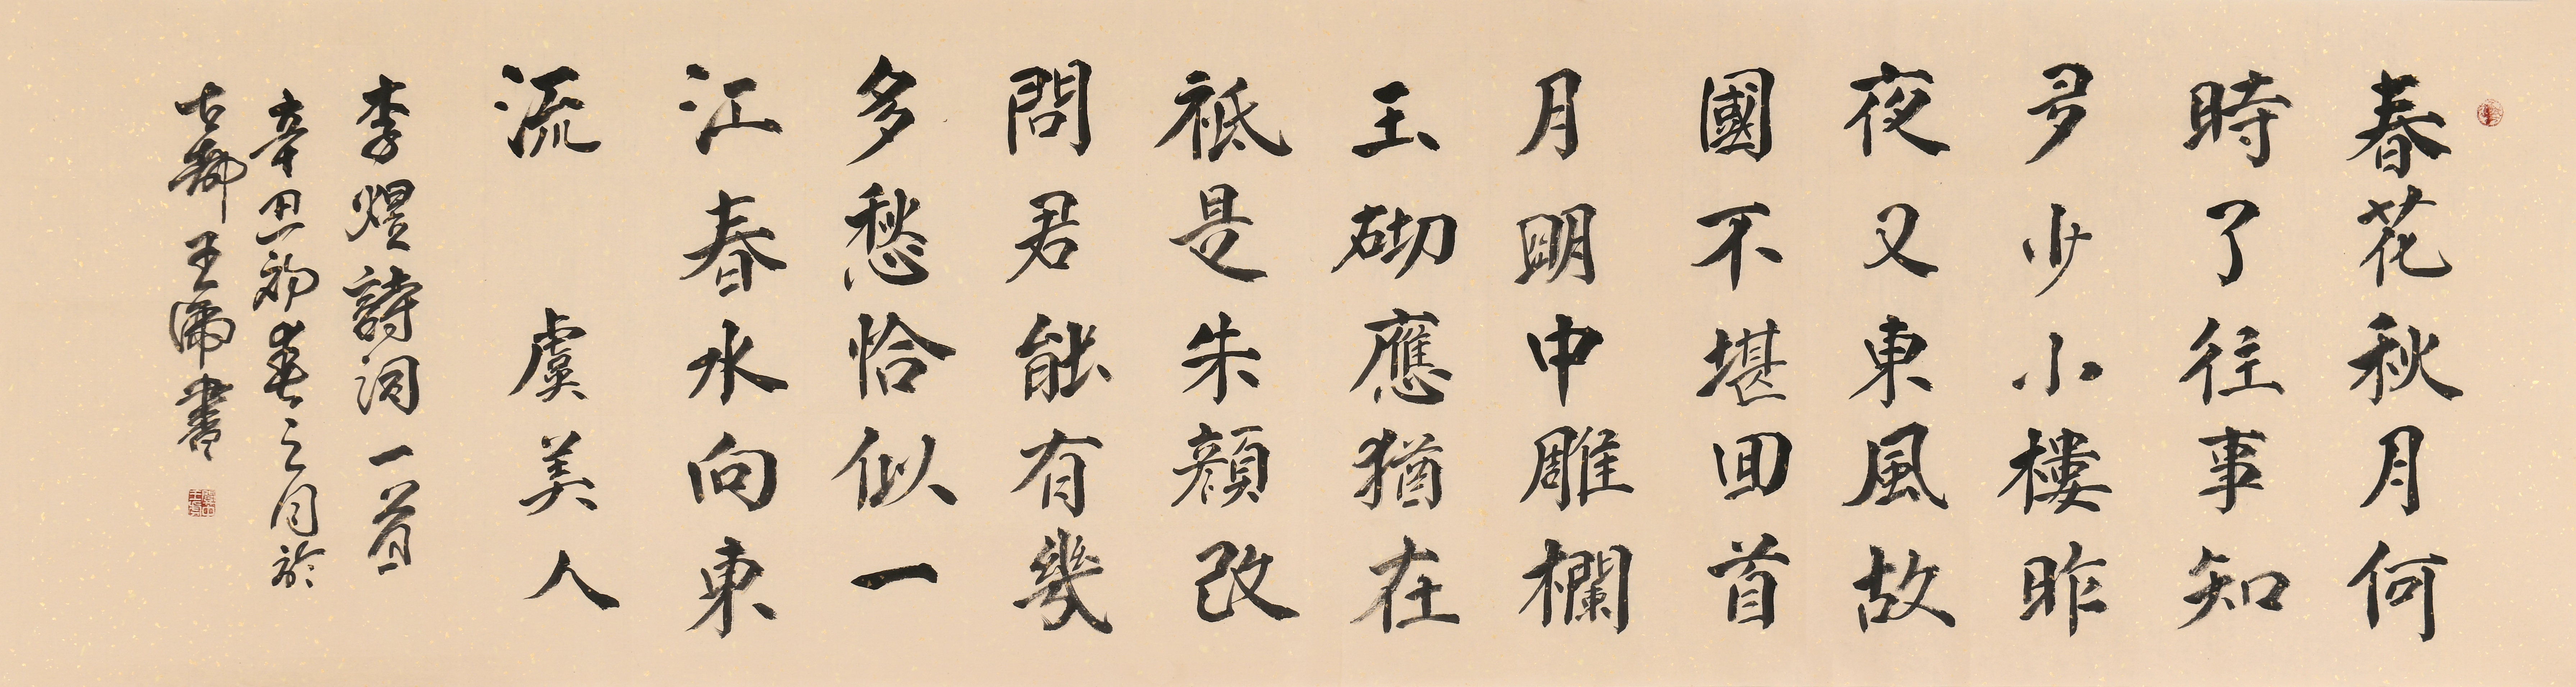 春花秋月何
時了往事知
多少小樓昨
夜又東風故
國不堪回首
月明中雕欄
玉砌應猶在
祗是朱顏改
問君能有幾
多愁恰似一
江春水向東
流 虞美人
李煜詩詞一首
辛丑初春之月於
古都王沛書